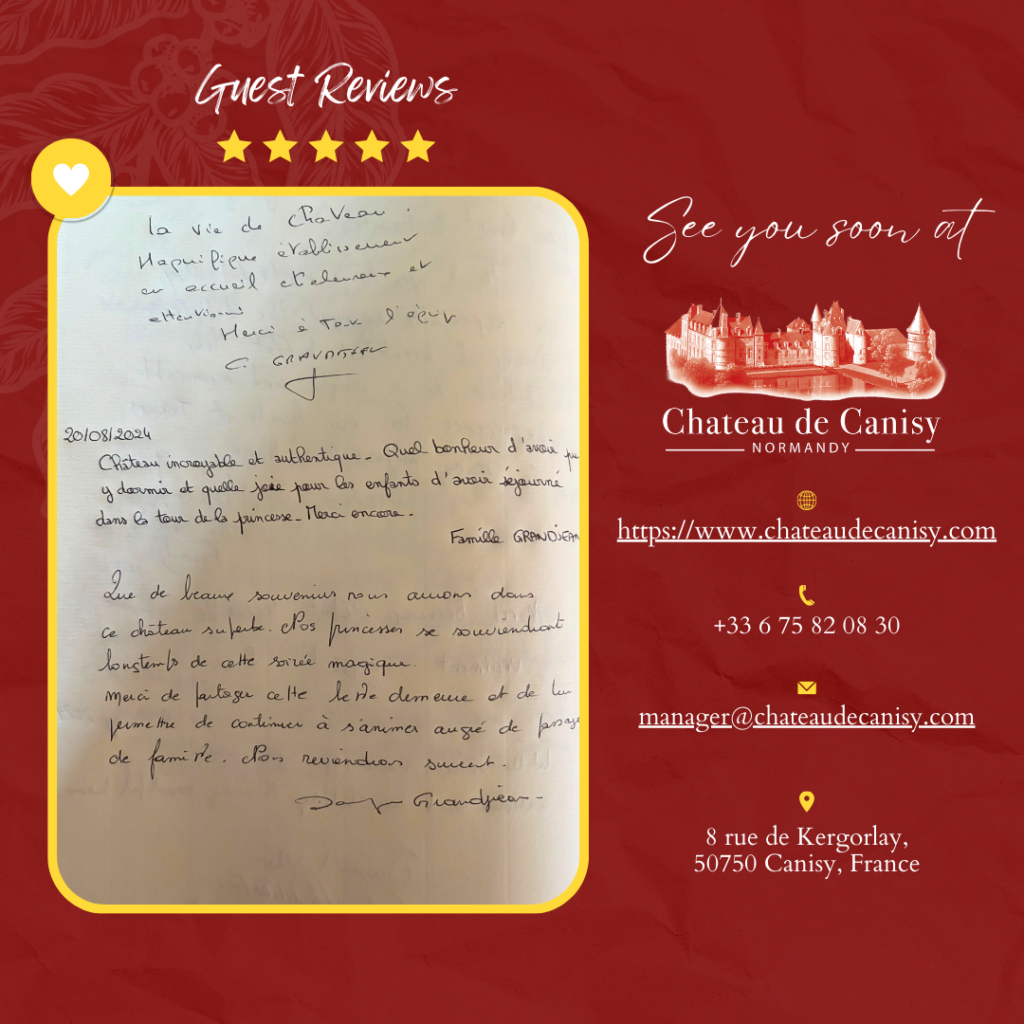 Guest Reviews
la vie de Chateau.
Magnifique établissement
un accueil chaleureux et
attentionné
Merci à Tout l'équip
C. GRAVATEAU
20/08/2024
Château incroyable et authentique. Quel bonheur d'avoir pu
y dormir et quelle joie pour les enfants d'avoir séjourné
dans la tour de la princesse. Merci encore.
Famille GRANDJEAN
Que de beaux souvenirs nous aurons dans
ce château superbe. Nos princesses se souviendront
longtemps de cette soirée magique.
Merci de partager cette belle demeure et de lui
permettre de continuer à s'animer au gré de passages
de famille. Nous reviendrons surement.
Grandjean
See you soon at
Chateau de Canisy
NORMANDY
https://www.chateaudecanisy.com
+33 6 75 82 08 30
manager@chateaudecanisy.com
8 rue de Kergorlay,
50750 Canisy, France